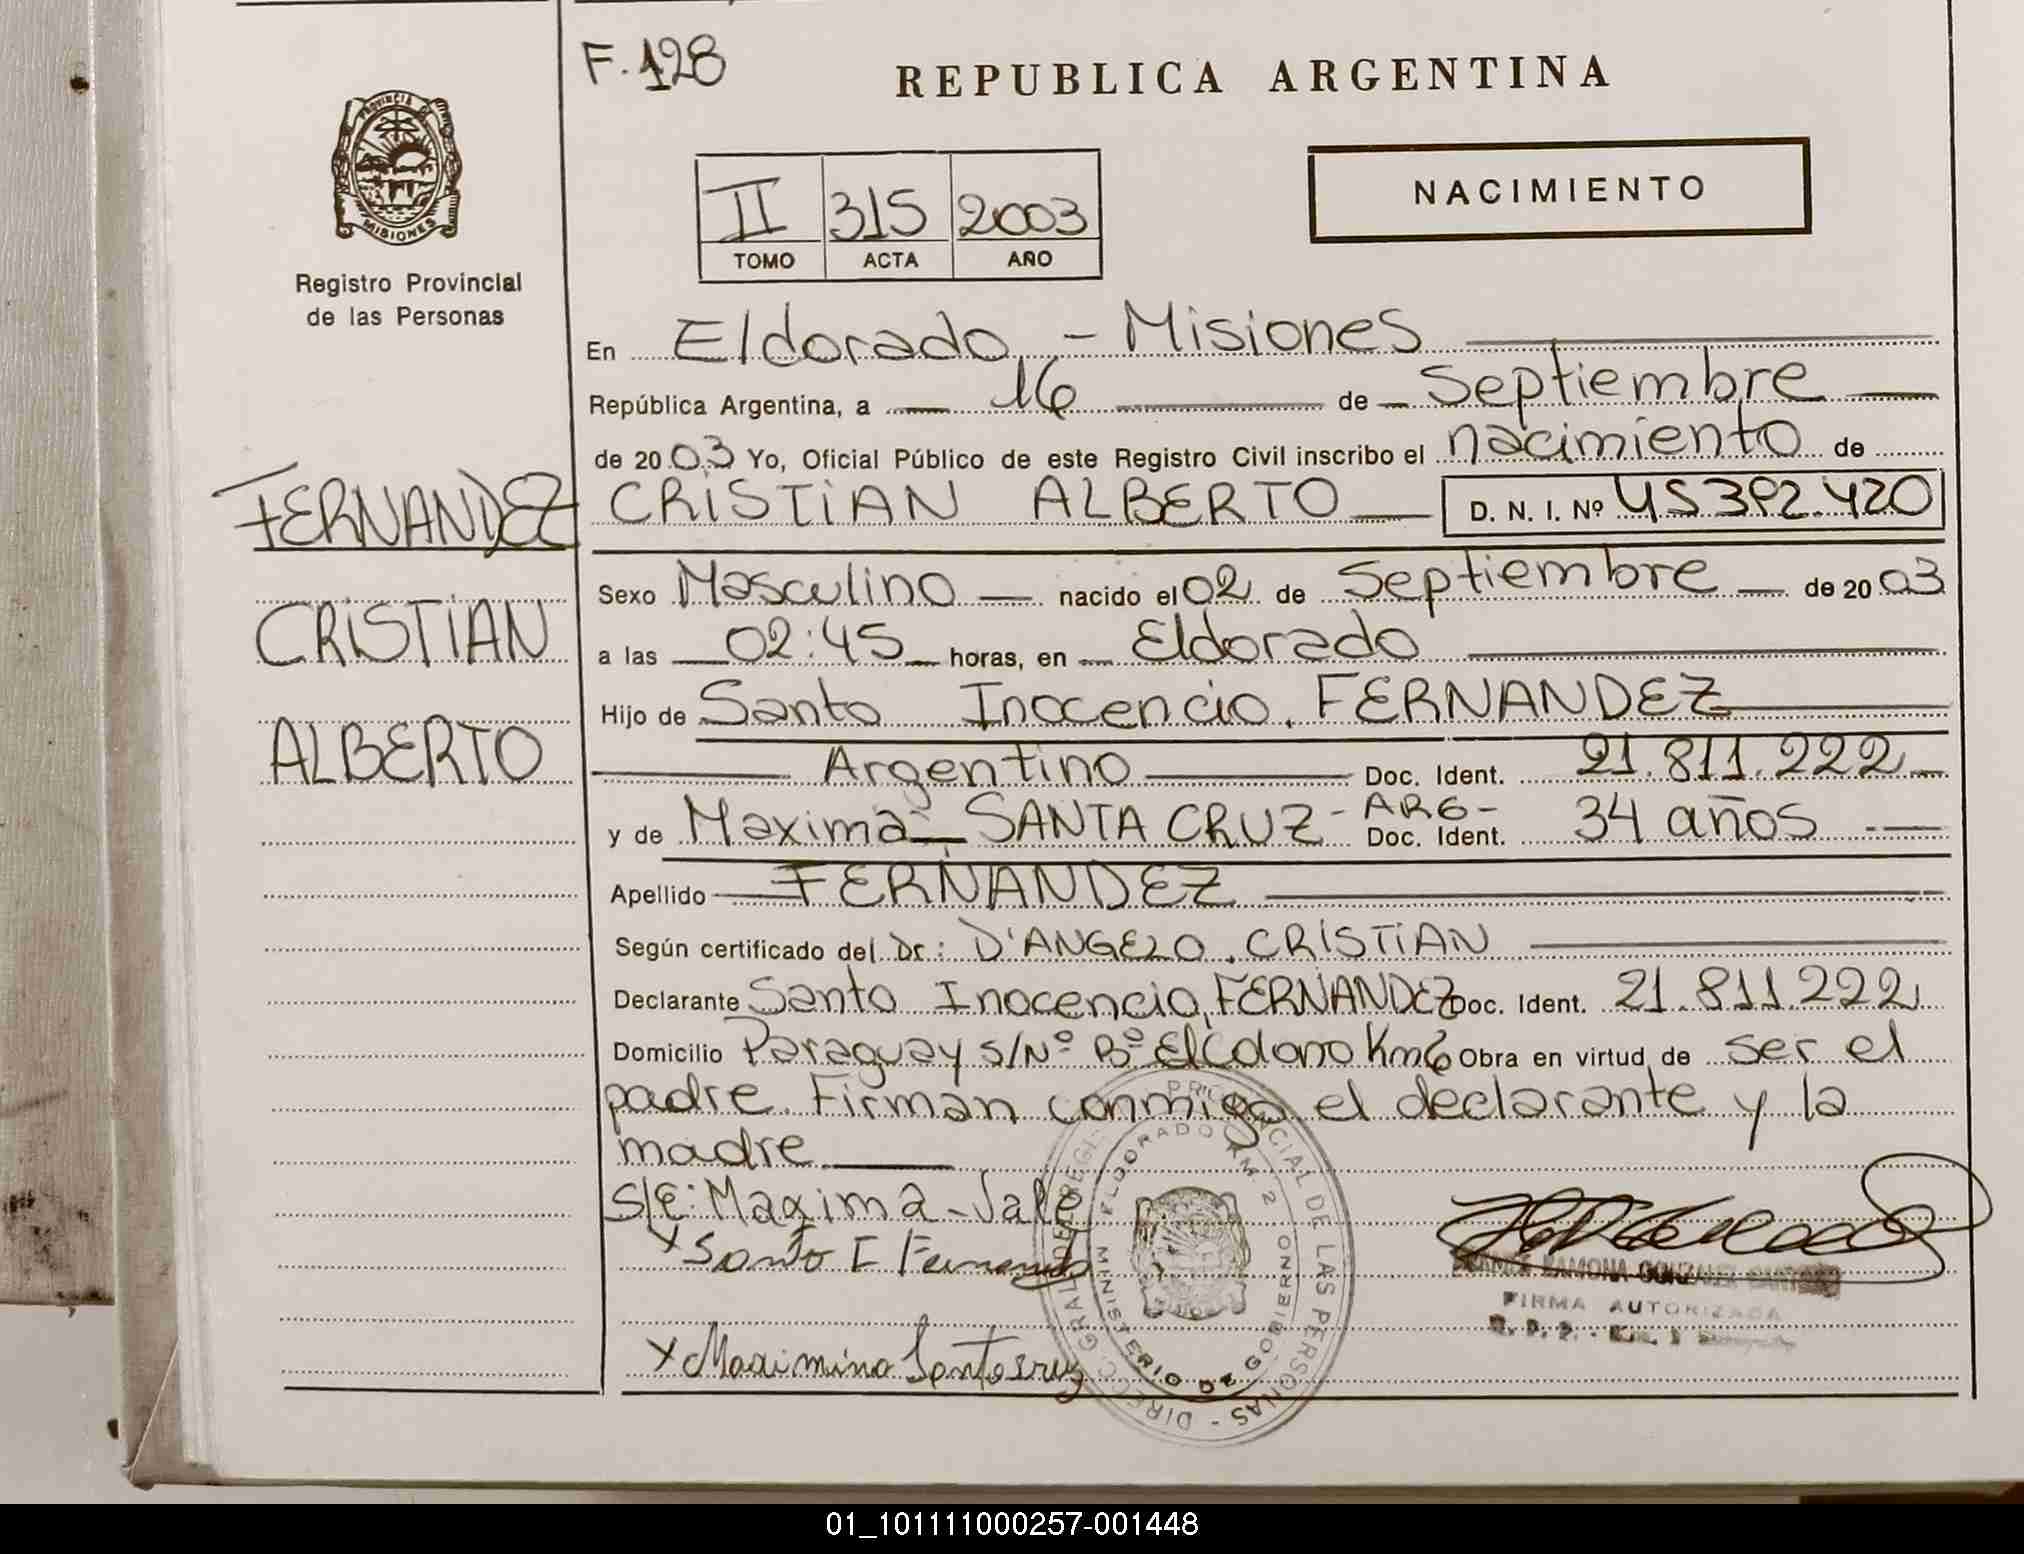 F. 128
REPUBLICA ARGENTINA
PROVINCIA DE
MISIONES
Registro Provincial
de las Personas
II 315 2003
TOMO ACTA AÑO
NACIMIENTO
En Eldorado - Misiones
República Argentina, a 16 de Septiembre
de 2003 Yo, Oficial Público de este Registro Civil inscribo el nacimiento de
FERNANDEZ
CRISTIAN
ALBERTO
CRISTIAN ALBERTO D. N. I. Nº 45.392.420
Sexo Masculino nacido el 02 de Septiembre de 2003
a las 02:45 horas, en Eldorado
Hijo de Santo Inocencio, FERNANDEZ
Argentino Doc. Ident. 21.811.222
y de Maxima SANTA CRUZ - ARG - Doc. Ident. 34 años
Apellido FERNANDEZ
Según certificado del Dr: D'ANGELO, CRISTIAN
Declarante Santo Inocencio, FERNANDEZ Doc. Ident. 21.811.222
Domicilio Paraguay s/Nº Bº Km6 Obra en virtud de ser el
padre. Firman conmigo el declarante y la
madre
S/E: Maxima - Vale
x Santo I Fernandez
x Maximina Santacruz
DIRECC. GRAL. DE REGISTRO PROVINCIAL DE LAS PERSONAS
ELDORADO KM. 2
MINISTERIO DE GOBIERNO
RAMONA GONZALEZ
FIRMA AUTORIZADA
01_101111000257-001448